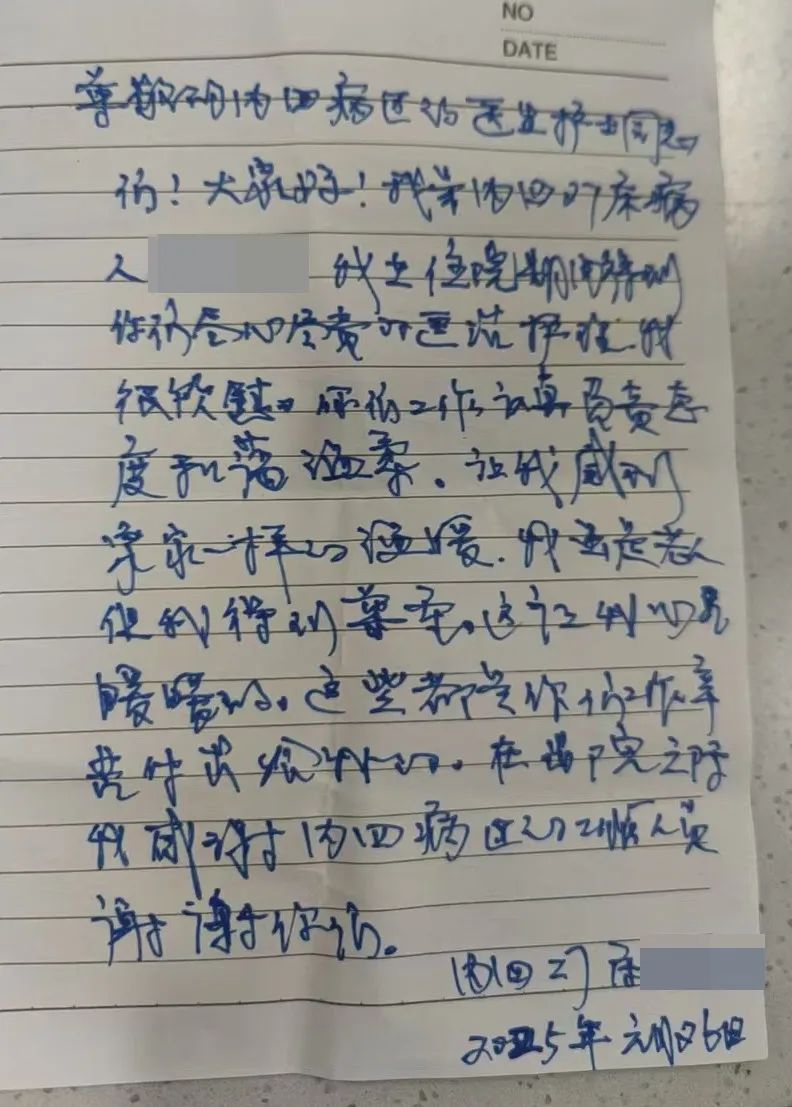 NO
DATE
尊敬的内四病区的医生护士同志
们！大家好！我是内四27床病
人 我在住院期间得到
你们尽心尽责的医治护理我
很欣慰。你们工作认真负责态
度和蔼温柔。让我感到
家一样的温暖.我虽是老人
但我得到尊重。这让我心里
暖暖的。这些都是你们工作辛
苦付出给我的。在出院之际
我感谢内四病区的工作人员
谢谢你们。
内四27床
2025年元月26日